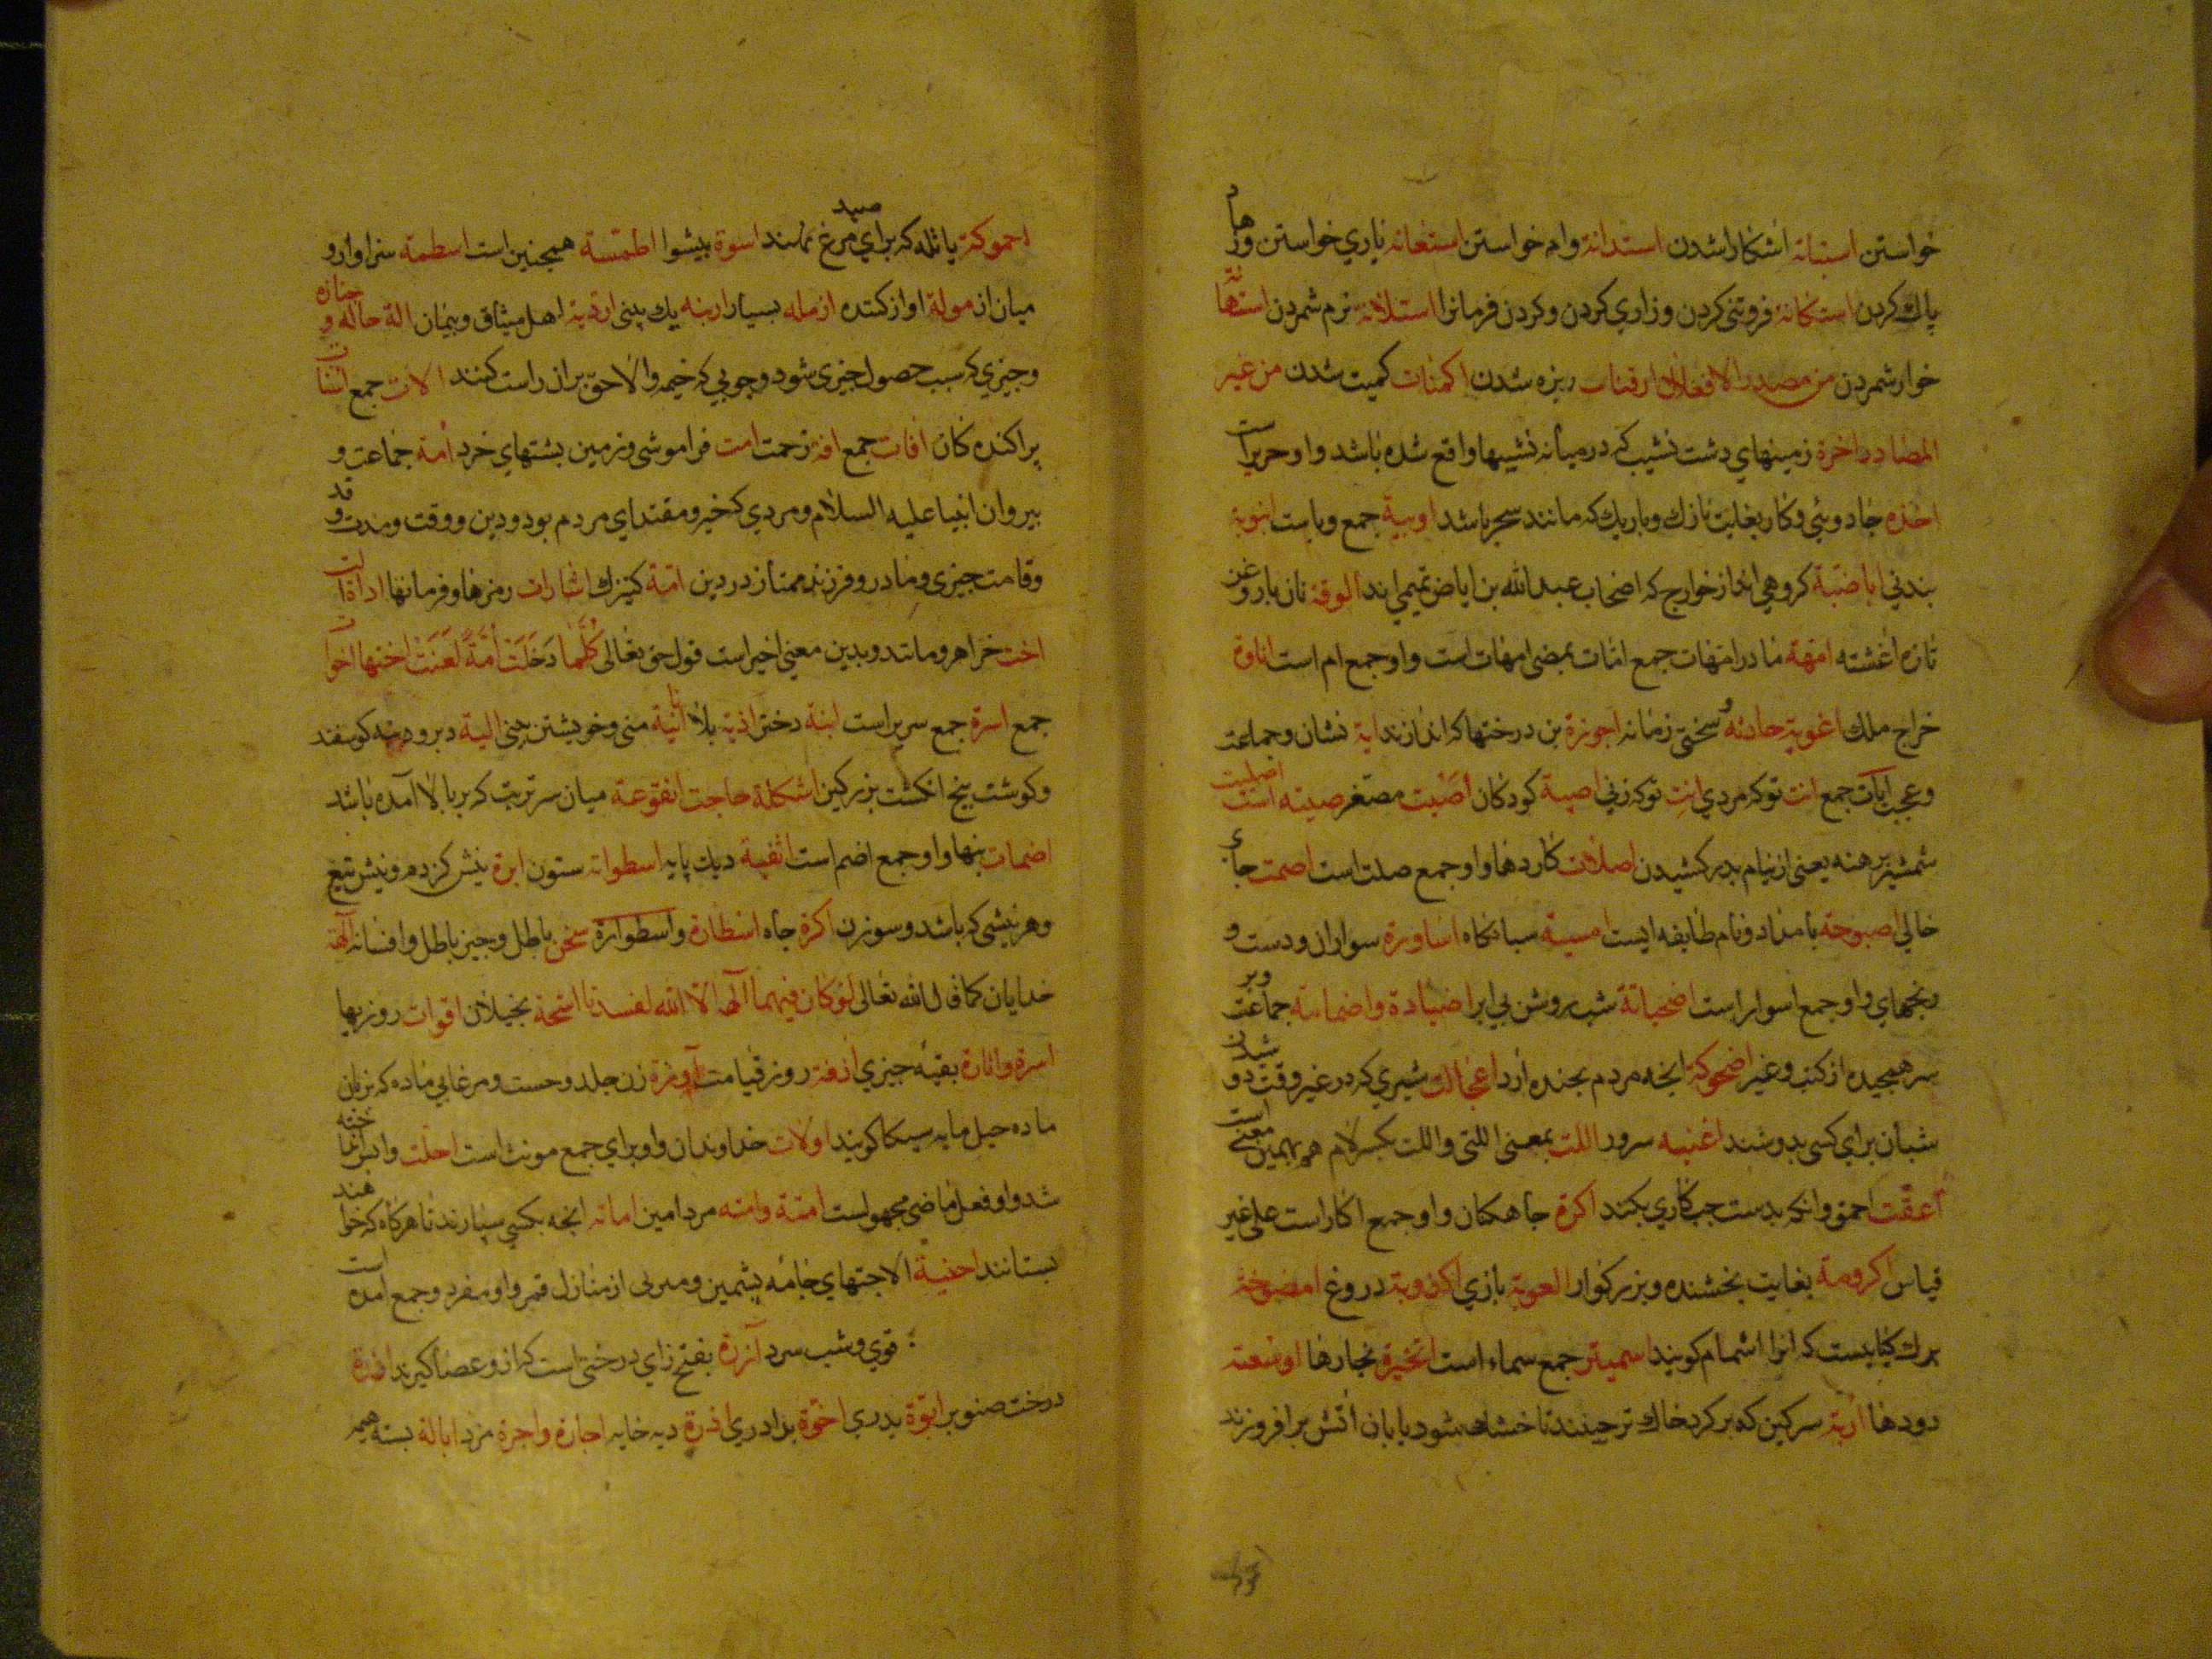 خواستن استبانة اشکارا شدن استدانة وام خواستن استعانة یاری خواستن و زهار
پاك کردن استکانة فروتنی کردن و زاری کردن و کردن فرمانرا استلانة نرم شمردن استهانة
خوار شمردن من مصدر الافعلال ارفتات ریزه شدن اکمتات کمیت شدن من غیر
المصادر اخرة زمینهای دشت نشیب که در میانه نشیبها واقع شده باشد و او حریرا است
اخذه جادوئی و کار بغایت نازك و باریك که مانند سحر باشد اوبیة جمع وباست انبوبة
بندنی اباضیة کروهی اند از خوارج که اصحاب عبد الله بن اباض تمیمی اند الوقة نان با روغن
تازه اغشته امهة مادر امهات جمع امات بمعنی امهات است و او جمع ام است اتاوة
خراج ملك اغویة حادثه و سختی زمانه اجوزة بن درختها که اندازند ایة نشان و جماعت
و عجب ایات جمع انت تو که مردی انت تو که زنی اصبیة کودکان أصبیت مصغر صبیته است اصلیت
شمشیر برهنه یعنی از نیام بدر کشیدن اصلات کاردها و او جمع صلت است اصمت جاء
خالی اصبوحة بامداد و نام طایفه ایست امسیة شبانکاه اساورة سواران و دست و
رنجهای و او جمع اسوار است اضحیانة شب روشن بی ابر اضبادة و اضمامة جماعت و بر
سر همجیده از کتب و غیر اضحوکة انجه مردم بخنده ارد اعجالت شیری که در غیر وقت دو شیدن
شبان برای کسی بدوشند اغنیه سرود اللت بمعنی اللتی و اللت بکسر لام هم بهمین معنی است
أعفت احمق و انکه بدست جب کاری بکند اکرة جاهکنان و او جمع اکار است علی غیر
قیاس اکرومة بغایت بخشنده و بزرکوار العوبة بازی اکذوبة دروغ امضوخة
برك کیابست که انرا اشمام کویند اسمیتر جمع سماء است ابخرة بخارها اوشعة
دودها ارة سرکین که بر کرد خاك تر جینند تا خشك شود یا بان اتش بر افروزند
احموکة پاتله که برای صید مرغ نهند اسوة بیشوا اطمسة همجنین است اسطمة سزاوار و
میان از مولة اواز کننده ازمله بسیار ارنبه یك بینی ارذیة اهل میثاق و بیمان الة حاله و جنازه
و جیزی که سبب حصول جیزی شود و جوبی که خیمه و الاحق بران راست کنند الات جمع اشتات
پراکنده کان افات جمع افة زحمت امت فراموشی و زمین بشتهای خرد امة جماعت و
بیروان انبیا علیه السلام و مردی که خیر و مقتدای مردم بود و دین و وقت و مدت و قد
و قامت جیزی و مادر و فرزند ممتاز در دین امة کنیزك اشارات رمزها و فرمانها اداة الت
اخت خواهر و مانند و بدین معنی اخیر است قول حق تعالی کلما دخلت امة لعنت اختها اخوات
جمع اسرة جمع سریر است ابنة دختر اذیة بلا انانیة منی و خویشتن بینی الیة دبر و دنبه کوسفند
و کوشت بیخ انکشت بزرکین اشکلة حاجت انقوعة میان سر تربت که بر بالا آمده باشد
اضمات بنها و او جمع اضم است اثفیة دیك پایه اسطوانة ستون ابرة نیش کزدم و نیش تیغ
و هر نیشی که باشد و سوزن اکرة جاه اسطارة و اسطوارة سخن باطل و جیز باطل و افسانه آلهة
خدایان کما قال الله تعالی لو کان فیهما آلهة الا الله لفسدتا اشحة بخیلان اقوات روزیها
اسرة و اثارة بقیه جیزی ازفة روز قیامت آوزة زن جلد و جست و مرغابی ماده که بزبان
ماده حیل مایه سیکا کویند اولات خداوندان و او برای جمع مونث است احلت واپس انداخته
شد و او فعل ماضی مجهولست امنة و امنه مرد امین امانة انجه بکسی سپارند تا هر کاه که خواهند
بستانند اخبیة الاجتهای جامه پشمین و منزلی از منازل قمر و او مفرد و جمع امده است
قوی و شب سرد آرزة بفتح زای درختی است که از و عصا کیرند ارزة
درخت صنوبر ابوة پدری اخوة برادری اذرة دبه خایه اجارة و اجرة مزد ابالة بسته هیمه